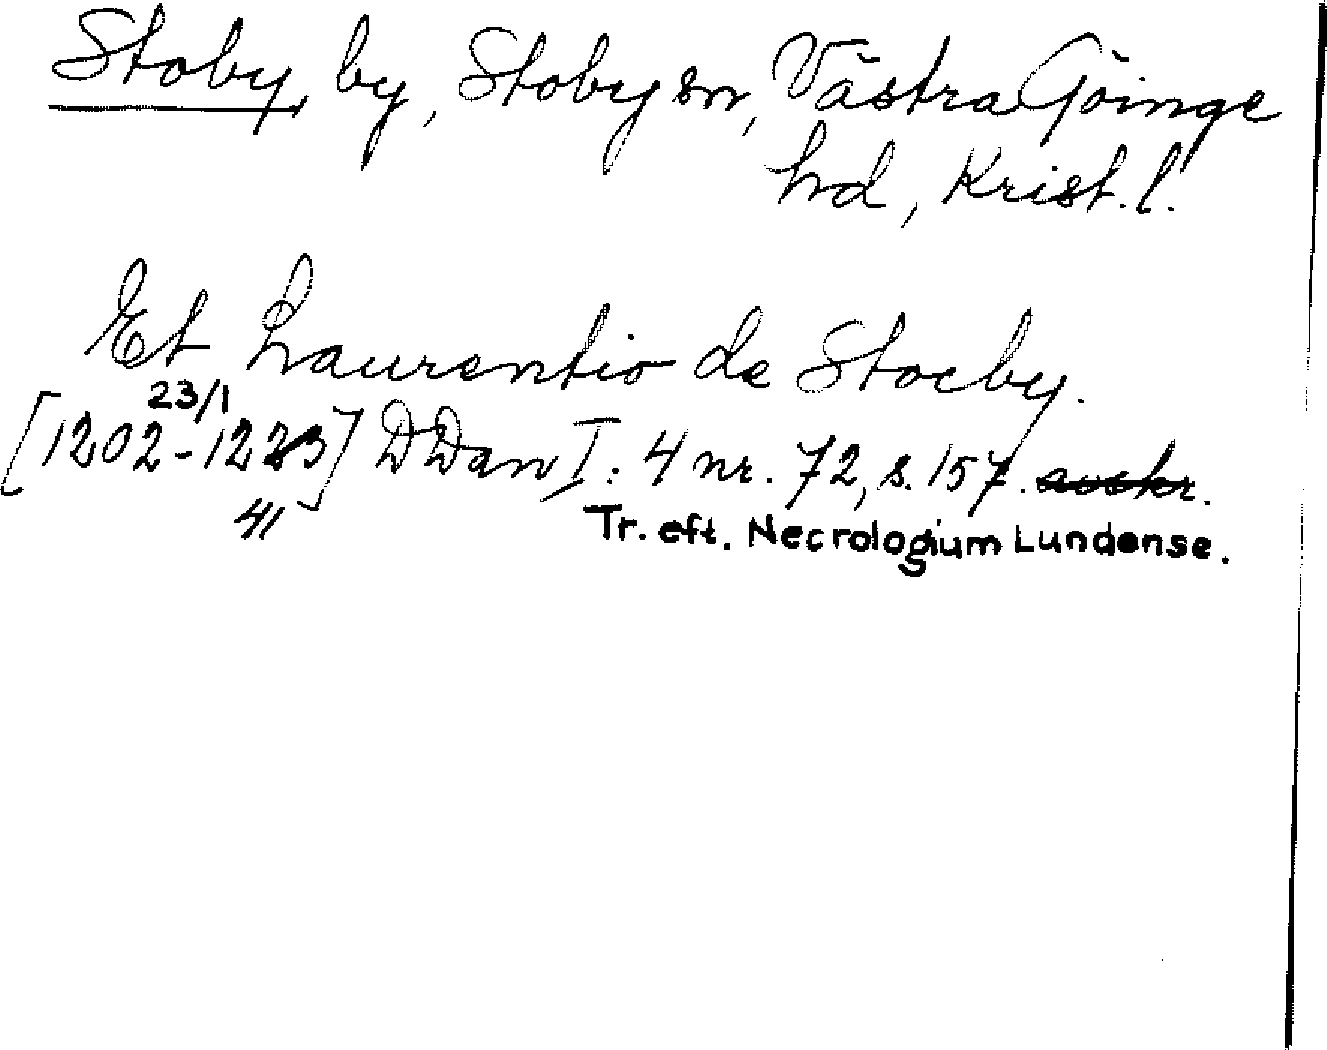 Stoby, by, Stoby sn, Västra Göinge
hd, Krist. l.
Et Laurentio de Stoeby.
23/1
[1202-1223] DDan I: 4 nr. 72, s. 157. avskr.
41
Tr. eft. Necrologium Lundense.